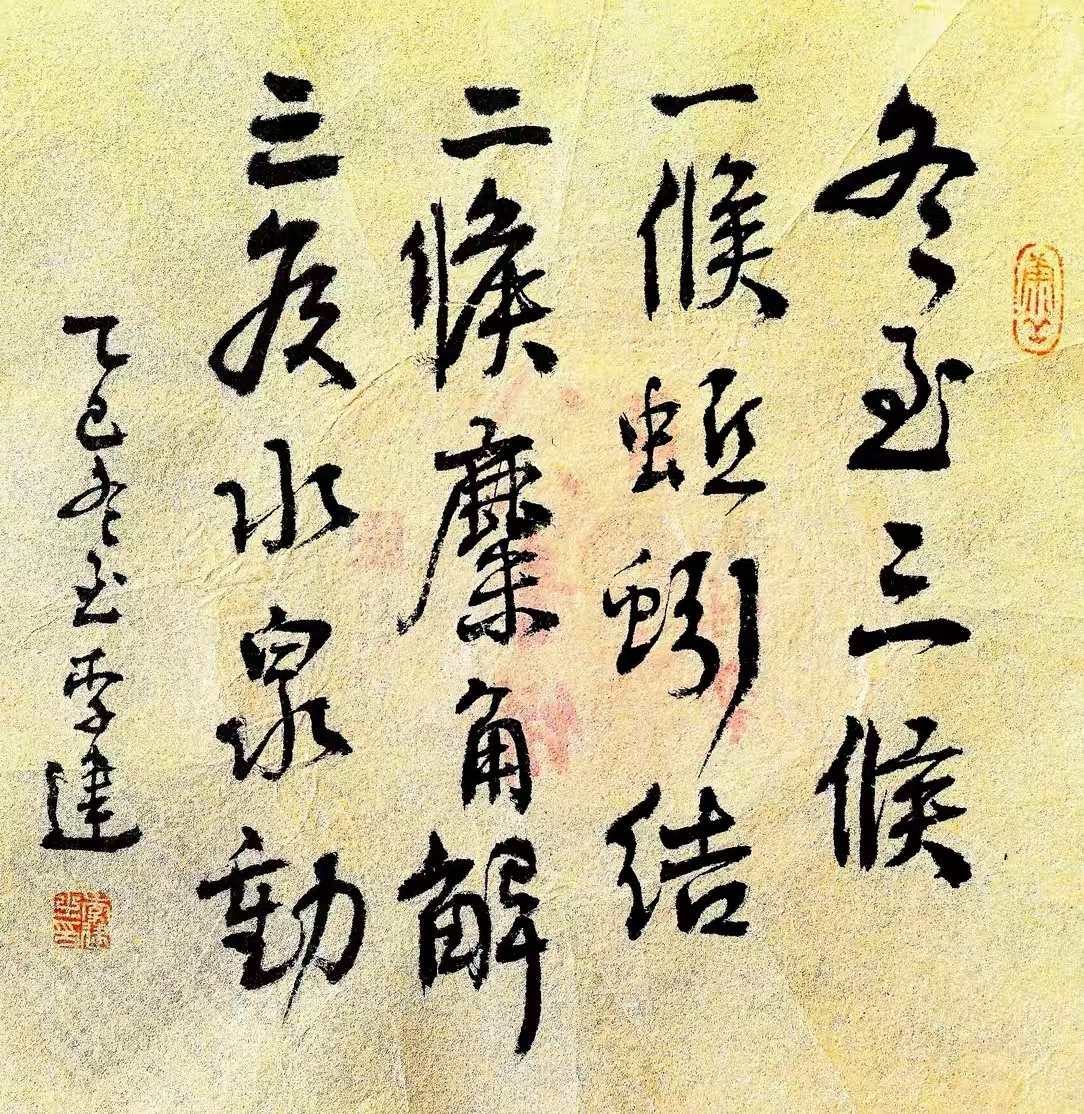 冬至三候
一候蚯蚓结
二候麋角解
三侯水泉動
乙巳冬至李建